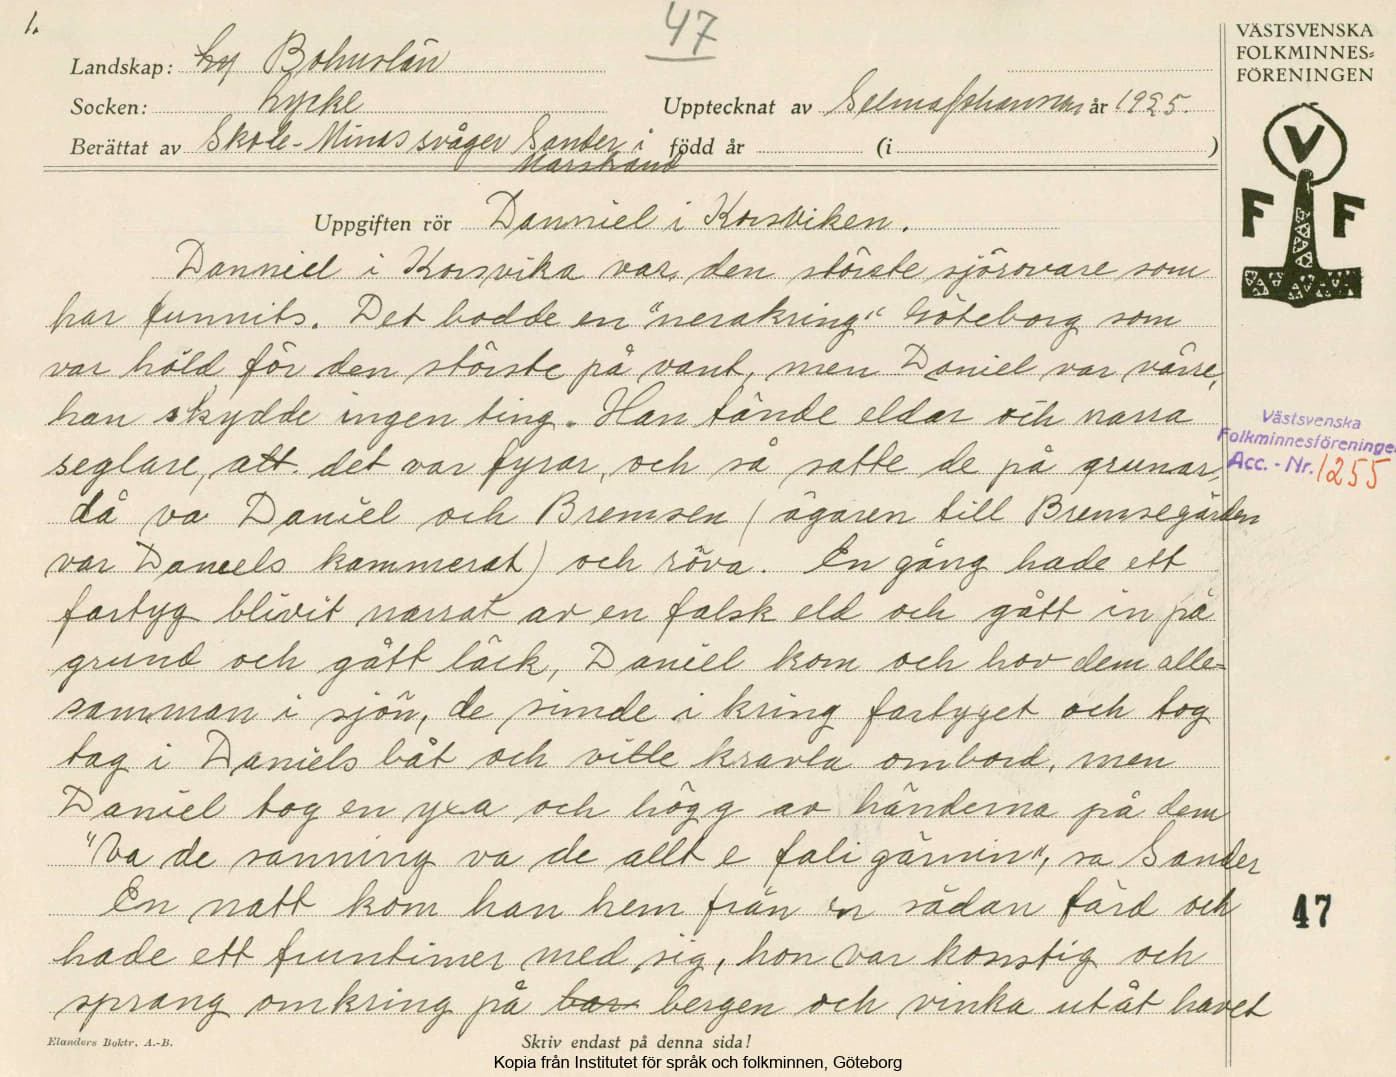 1.
47
VÄSTSVENSKA
FOLKMINNES=
FÖRENINGEN
Landskap: Bohuslän
Socken: Lycke
Upptecknat av Selma Johansson år 1925.
Berättat av Skole-Minas svåger Sander i Marstrand född år (i )
V
F F
Uppgiften rör Danniel i Korsviken.
Danniel i Korsvika var den störste sjörovare som
har funnits. Det bodde en "nerakring" Göteborg som
var höld för den störste på vant, men Daniel var värre,
han skydde ingen ting. Han tände eldar och narra
seglare, att det var fyrar, och så satte de på grunar,
då va Daniel och Bremsen (ägaren till Bremsegården
var Daniels kammerat) och röva. En gång hade ett
fartyg blivit narrat av en falsk eld och gått in på
grund och gått läck, Daniel kom och hov dem alle-
samman i sjön, de simde i kring fartyget och tog
tag i Daniels båt och ville kravla ombord, men
Daniel tog en yxa och högg av händerna på dem
"Va de sanning va de allt e fali gärnin", sa Sander
En natt kom han hem från en sådan färd och
hade ett fruntimer med sig, hon var konstig och
sprang omkring på bar bergen och vinka utåt havet
Västsvenska
Folkminnesföreningen
Acc. - Nr. 1255
47
Elanders Boktr. A.-B.
Skriv endast på denna sida!
Kopia från Institutet för språk och folkminnen, Göteborg